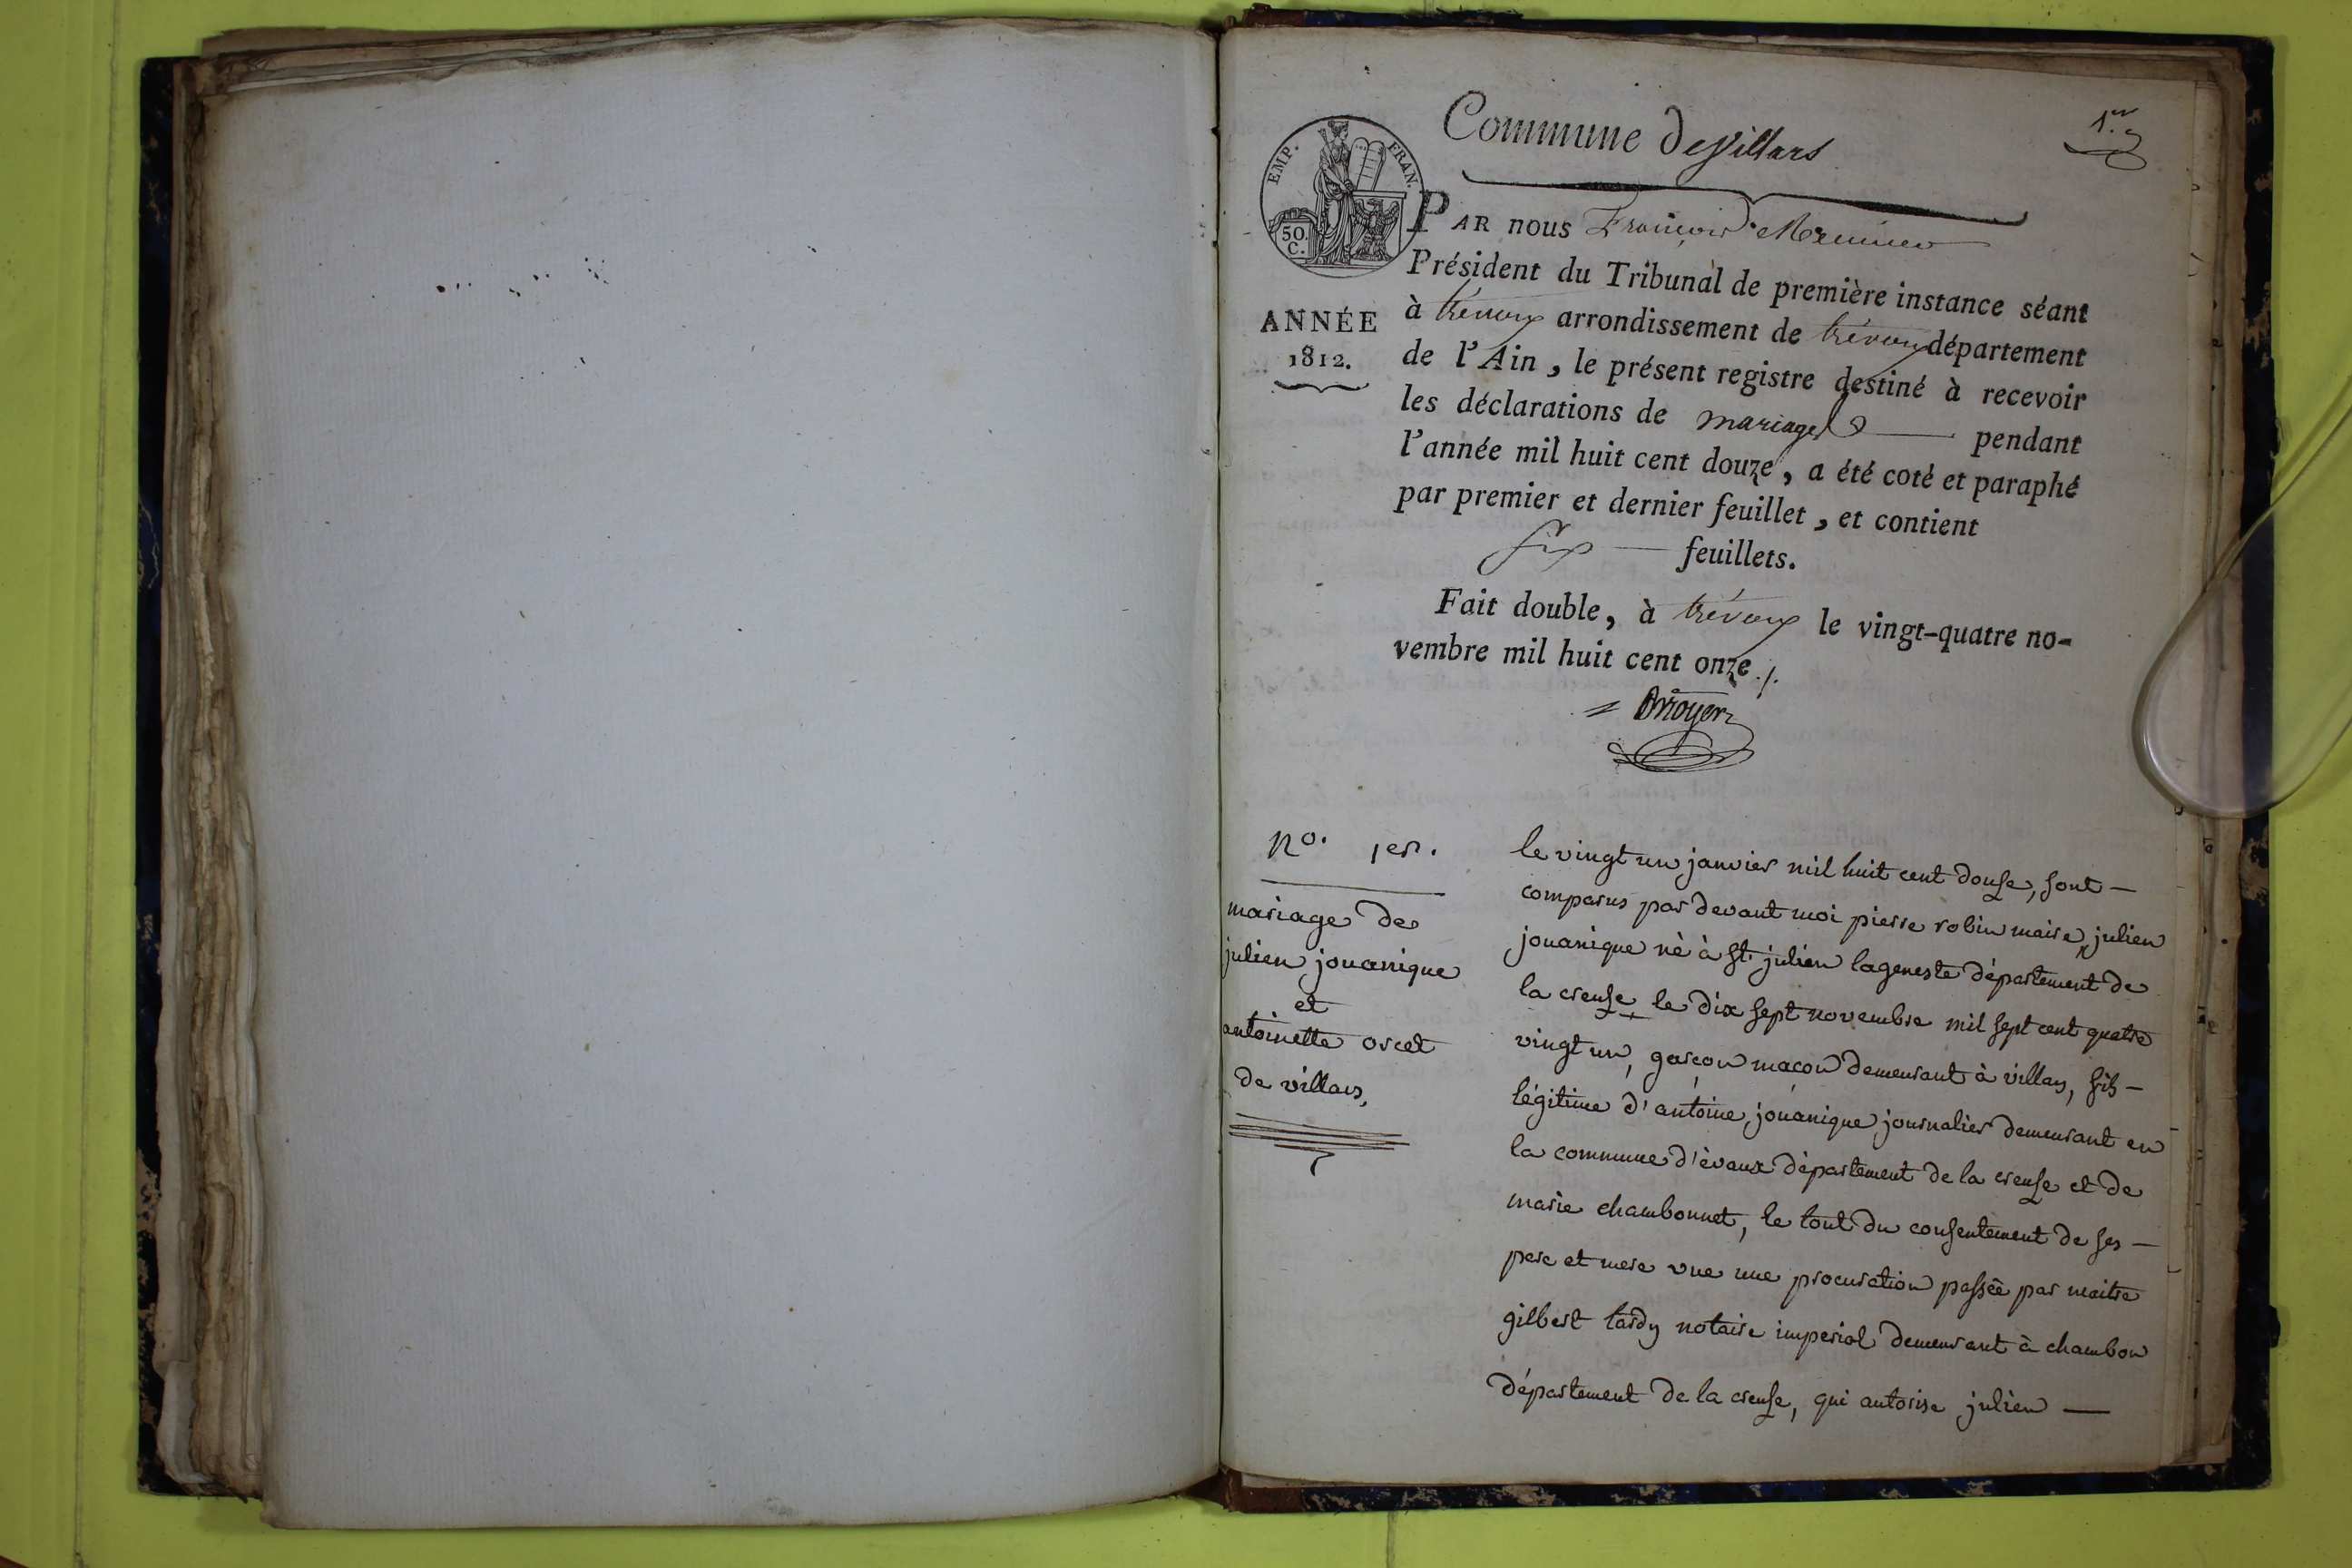 Commune de Villars
1er
EMP. FRAN.
50.
C.
ANNÉE
1812.
PAR nous François
Président du Tribunal de première instance séant
à trévoux arrondissement de trévoux département
de l'Ain, le présent registre destiné à recevoir
les déclarations de mariages pendant
l'année mil huit cent douze, a été coté et paraphé
par premier et dernier feuillet, et contient
six feuillets.
Fait double, à trévoux le vingt-quatre no-
vembre mil huit cent onze ./.
no. 1er.
mariage de
julien jouanique
et
antoinette orcet
de villars,
le vingt un janvier mil huit cent douse, sont —
comparus par devant moi pierre robin maire, julien
jouanique nè à st. julien lageneste département de
la creuse le dix sept novembre mil sept cent quatre
vingt un, garçon maçon demeurant à villars, fils —
légitime d'antoine jouanique journalier demeurant en
la commune d'èvaux département de la creuse et de
marie chambonnet, le tout du consentement de ses —
pere et mere vue une procuration passée par maitre
gilbert tardy notaire imperial demeurant à chambon
département de la creuse, qui autorise julien —